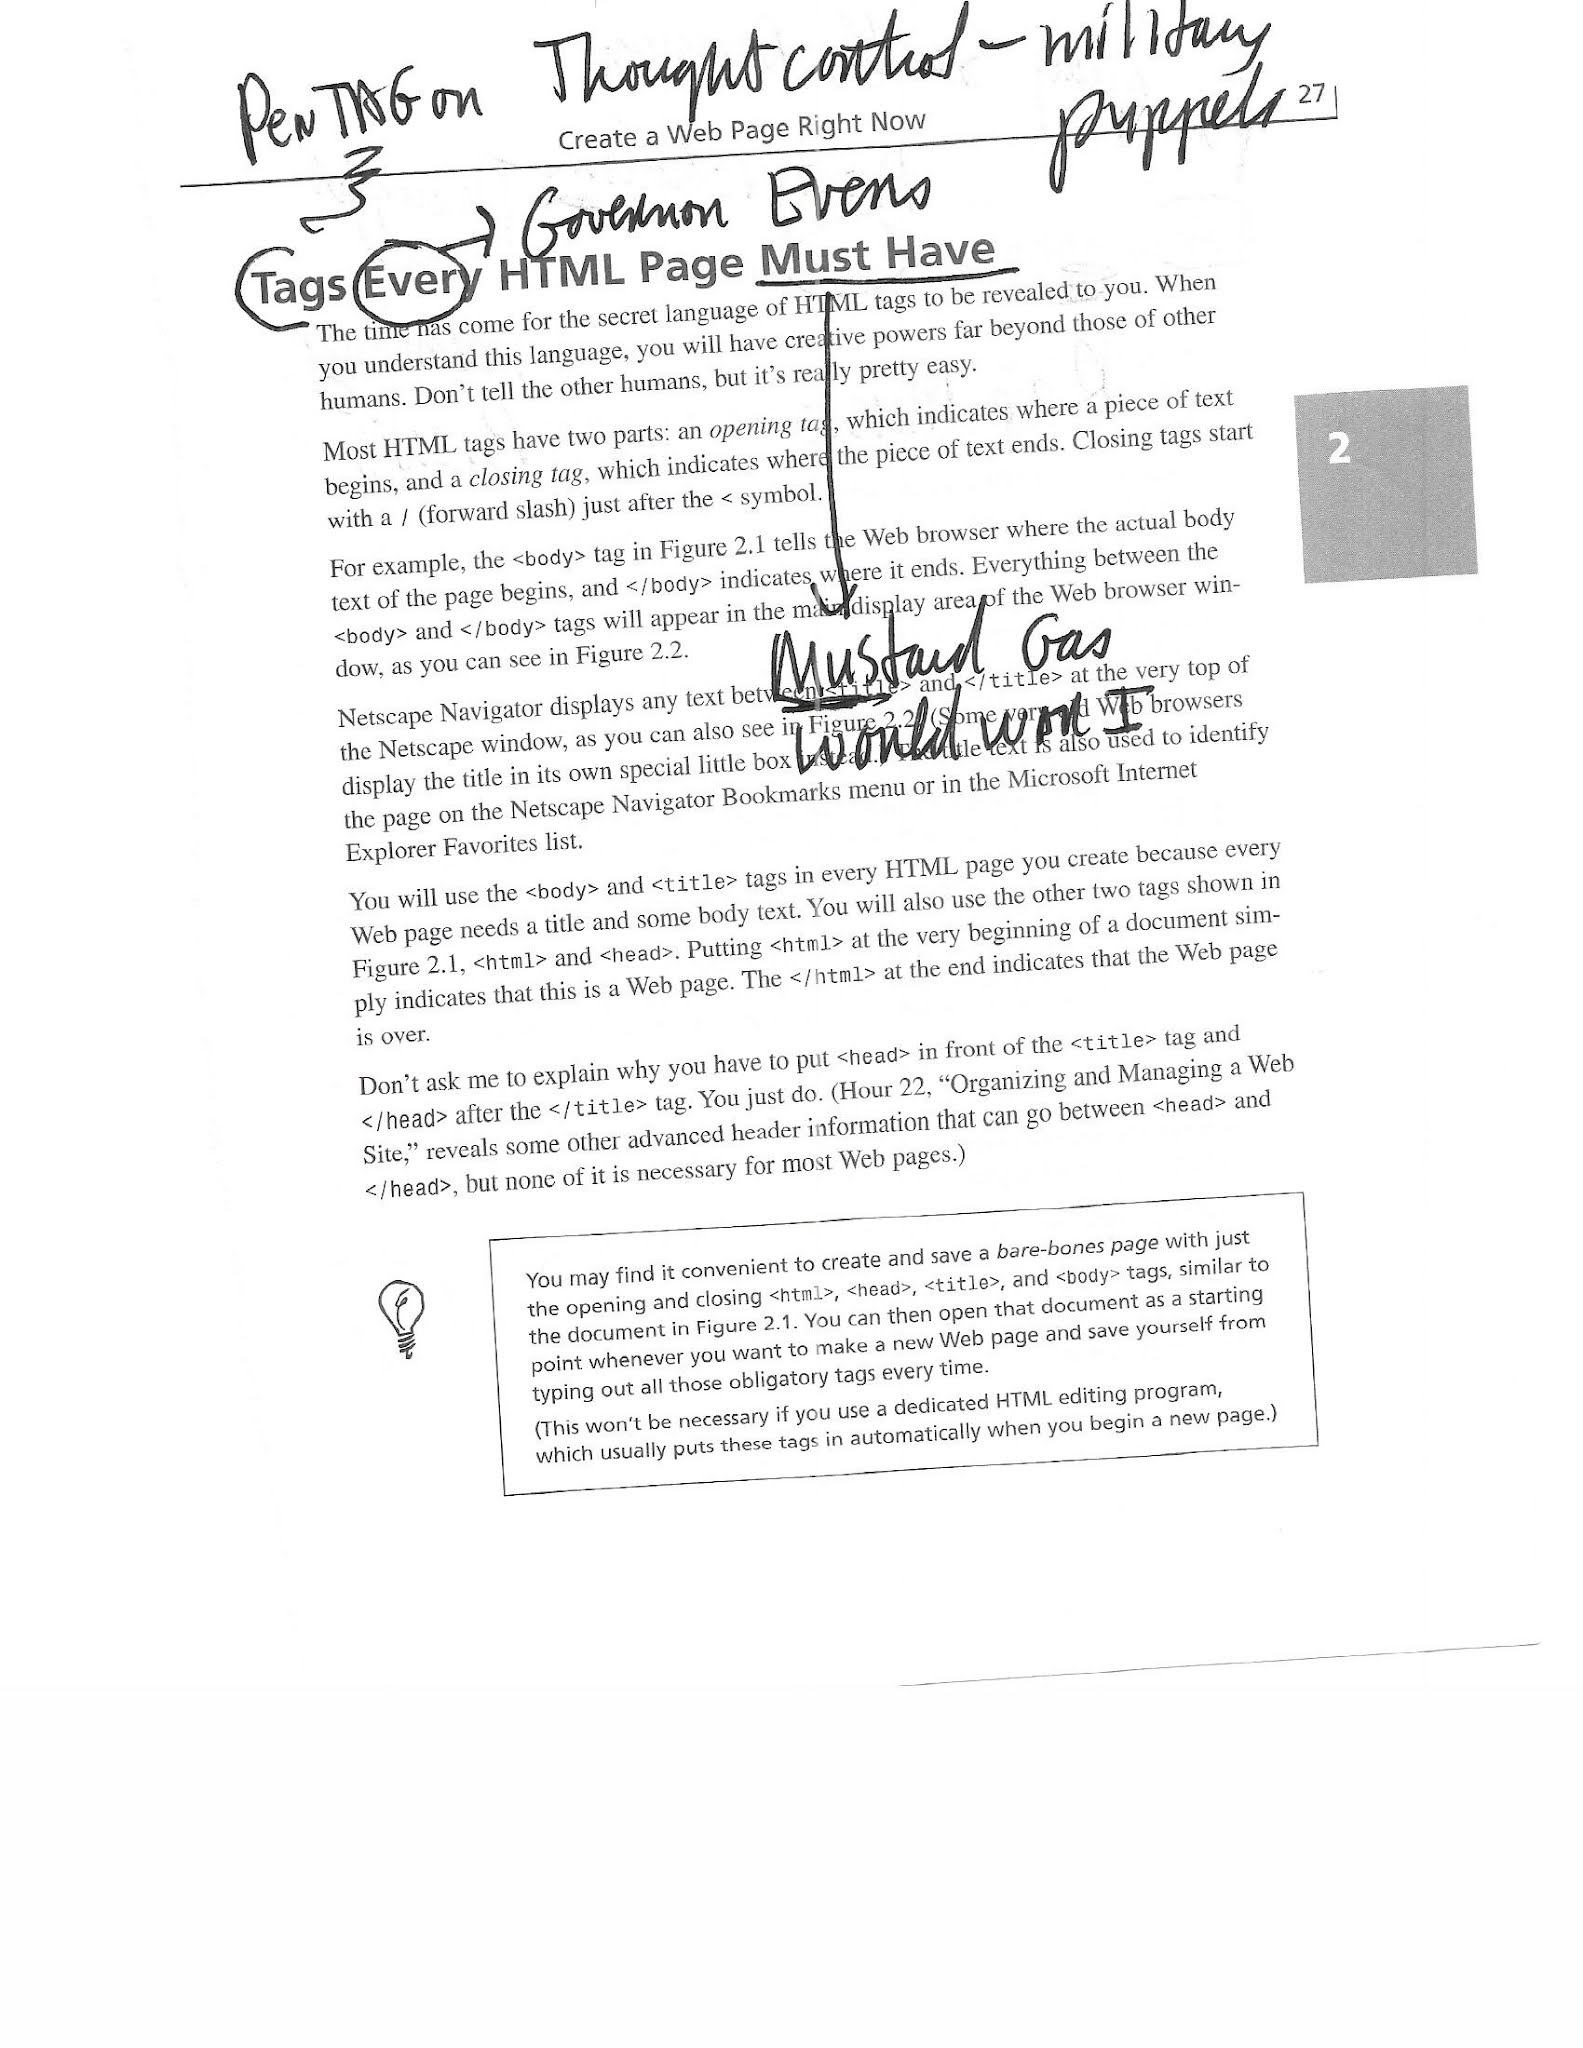 Thought control – military
PenTAGon
puppets
Create a Web Page Right Now
27
Governor Evens
Tags Every HTML Page Must Have
The time has come for the secret language of HTML tags to be revealed to you. When
you understand this language, you will have creative powers far beyond those of other
humans. Don't tell the other humans, but it's really pretty easy.
Most HTML tags have two parts: an opening tag, which indicates where a piece of text
begins, and a closing tag, which indicates where the piece of text ends. Closing tags start
with a / (forward slash) just after the < symbol.
2
For example, the <body> tag in Figure 2.1 tells the Web browser where the actual body
text of the page begins, and </body> indicates where it ends. Everything between the
<body> and </body> tags will appear in the main display area of the Web browser win-
dow, as you can see in Figure 2.2.
Mustard Gas
World War I
Netscape Navigator displays any text between <title> and </title> at the very top of
the Netscape window, as you can also see in Figure 2.2. (Some very old Web browsers
display the title in its own special little box instead.) The title text is also used to identify
the page on the Netscape Navigator Bookmarks menu or in the Microsoft Internet
Explorer Favorites list.
You will use the <body> and <title> tags in every HTML page you create because every
Web page needs a title and some body text. You will also use the other two tags shown in
Figure 2.1, <html> and <head>. Putting <html> at the very beginning of a document sim-
ply indicates that this is a Web page. The </html> at the end indicates that the Web page
is over.
Don't ask me to explain why you have to put <head> in front of the <title> tag and
</head> after the </title> tag. You just do. (Hour 22, “Organizing and Managing a Web
Site,” reveals some other advanced header information that can go between <head> and
</head>, but none of it is necessary for most Web pages.)
You may find it convenient to create and save a bare-bones page with just
the opening and closing <html>, <head>, <title>, and <body> tags, similar to
the document in Figure 2.1. You can then open that document as a starting
point whenever you want to make a new Web page and save yourself from
typing out all those obligatory tags every time.
(This won't be necessary if you use a dedicated HTML editing program,
which usually puts these tags in automatically when you begin a new page.)